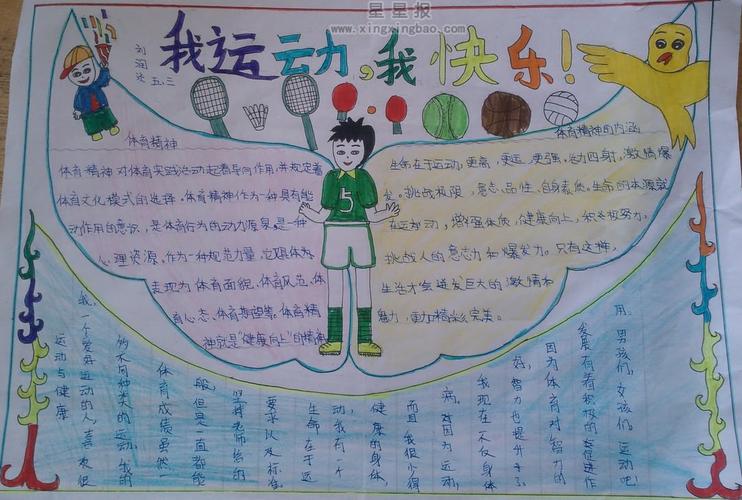 星星报
www.xingxingbao.com
我运动,我快乐!
刘润达
五、三
体育精神
体育精神对体育实践活动起着导向作用,并规定着
体育文化模式的选择,体育精神作为一种具有能
动作用的意识,是体育行为的动力源泉,是一种
心理资源,作为一种规范力量,它具体为
表现为体育面貌,体育风范,体
育心态、体育期望等。体育精
神就是“健康向上”的精神
体育精神的内涵
生命在于运动,更高,更远,更强,活力四射,激情爆
发。挑战极限,意志,品性,自身素质。生命的本源就
在运动力,增强体质,健康向上,积极努力,
挑战人的意志力和爆发力。只有这样,
生活才会迸发巨大的激情和
魅力,更加精彩完美。
运动与健康
我,一个爱好运动的人,喜欢很
多不同种类的运动,我的
体育成绩虽然一
般,但是一直都能
坚持老师给的
要求以及标准。
生命在于运
动,我有一个
健康的身体,
而且我很少得
病,因为运动,
我现在不仅身体
好,智力也提升了,
因为体育对智力的
发展有着积极的促进作
用。男孩们,女孩们。运动吧!
5